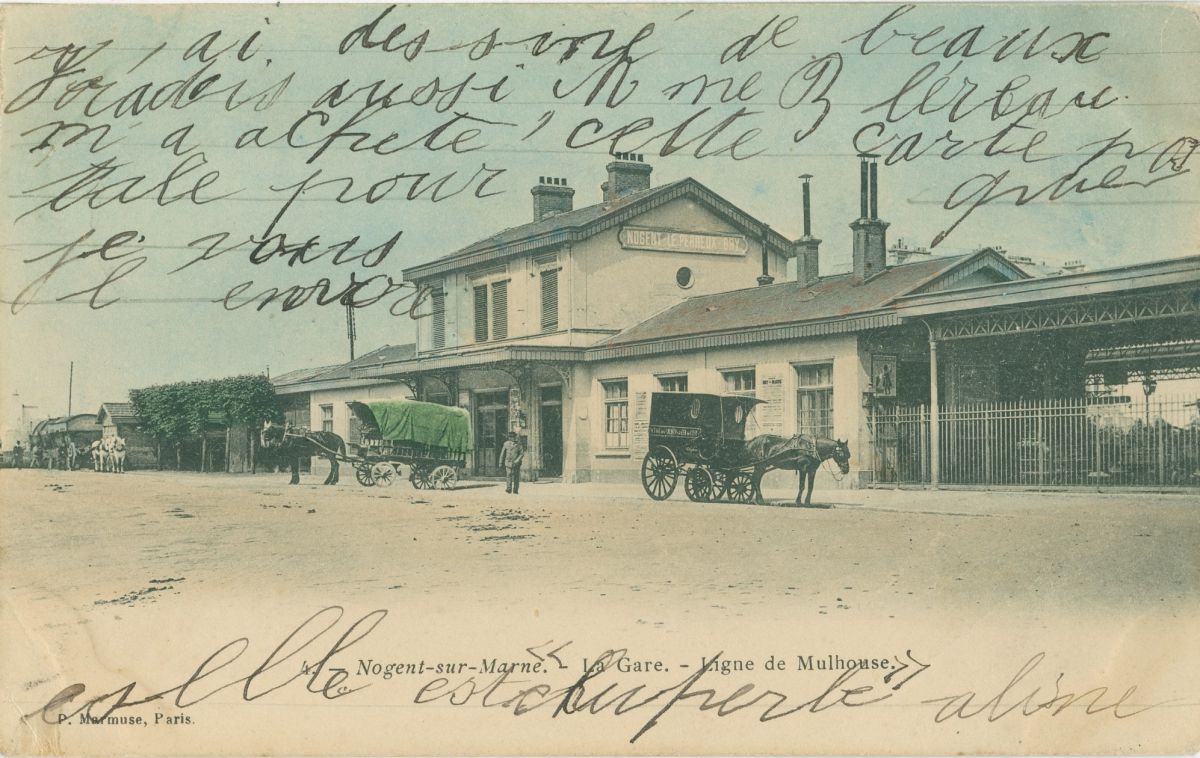 j'ai dessiné de beaux
aussi Mme Bléreau
m'a acheté cette carte pos
tale pour que
je vous
l envoi
NOGENT-LE-PERREUX-BRY
4. - Nogent-sur-Marne. - La Gare. - Ligne de Mulhouse.
elle est « superbe » aline
P. Marmuse, Paris.